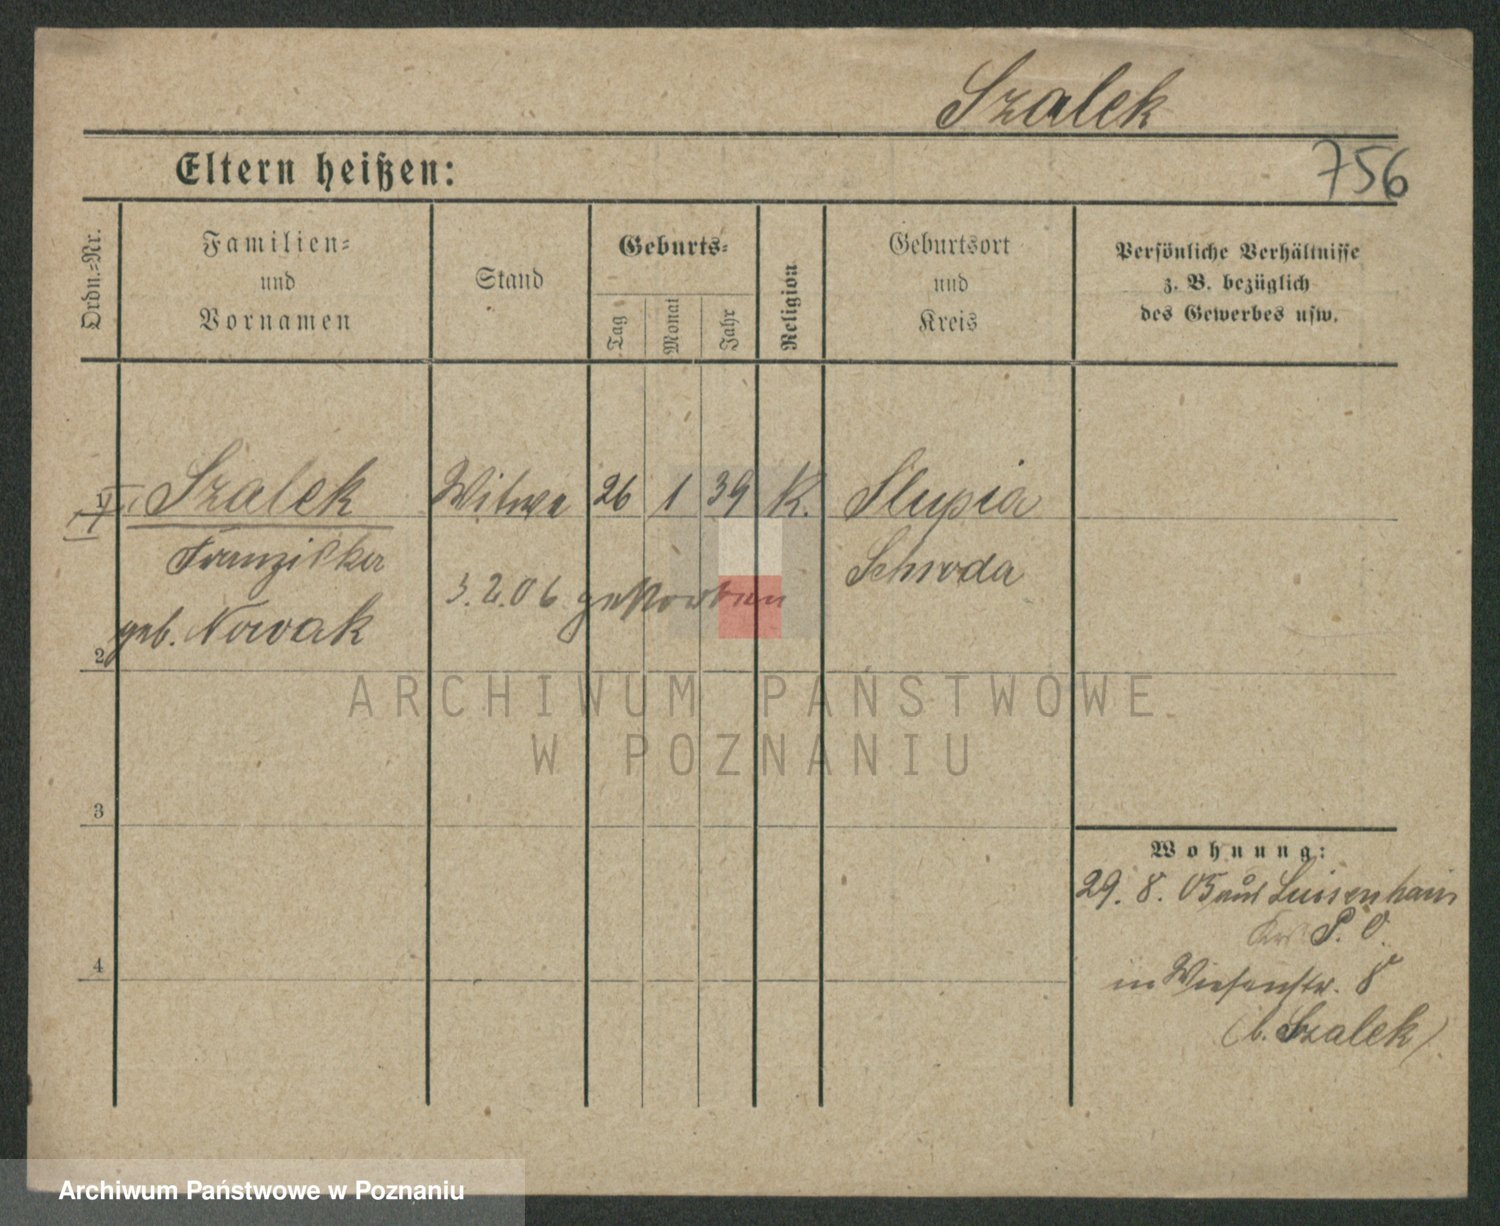 Szalek
Eltern heißen:
756
Ordn.-Nr.
Familien-
und
Vornamen
Stand
Geburts-
Tag
Monat
Jahr
Religion
Geburtsort
und
Kreis
Persönliche Verhältnisse
z. B. bezüglich
des Gewerbes usw.
Szalek Witwe 26 1 39 K. Slupia
Franziska Schroda
3.2.06 gestorben
geb. Nowak
2
ARCHIWUM PAŃSTWOWE
W POZNANIU
3
Wohnung:
29. 8. 05 aus Luisenhain
Krs P. O.
4
in Wiesenstr. 8
(b. Szalek)
Archiwum Państwowe w Poznaniu